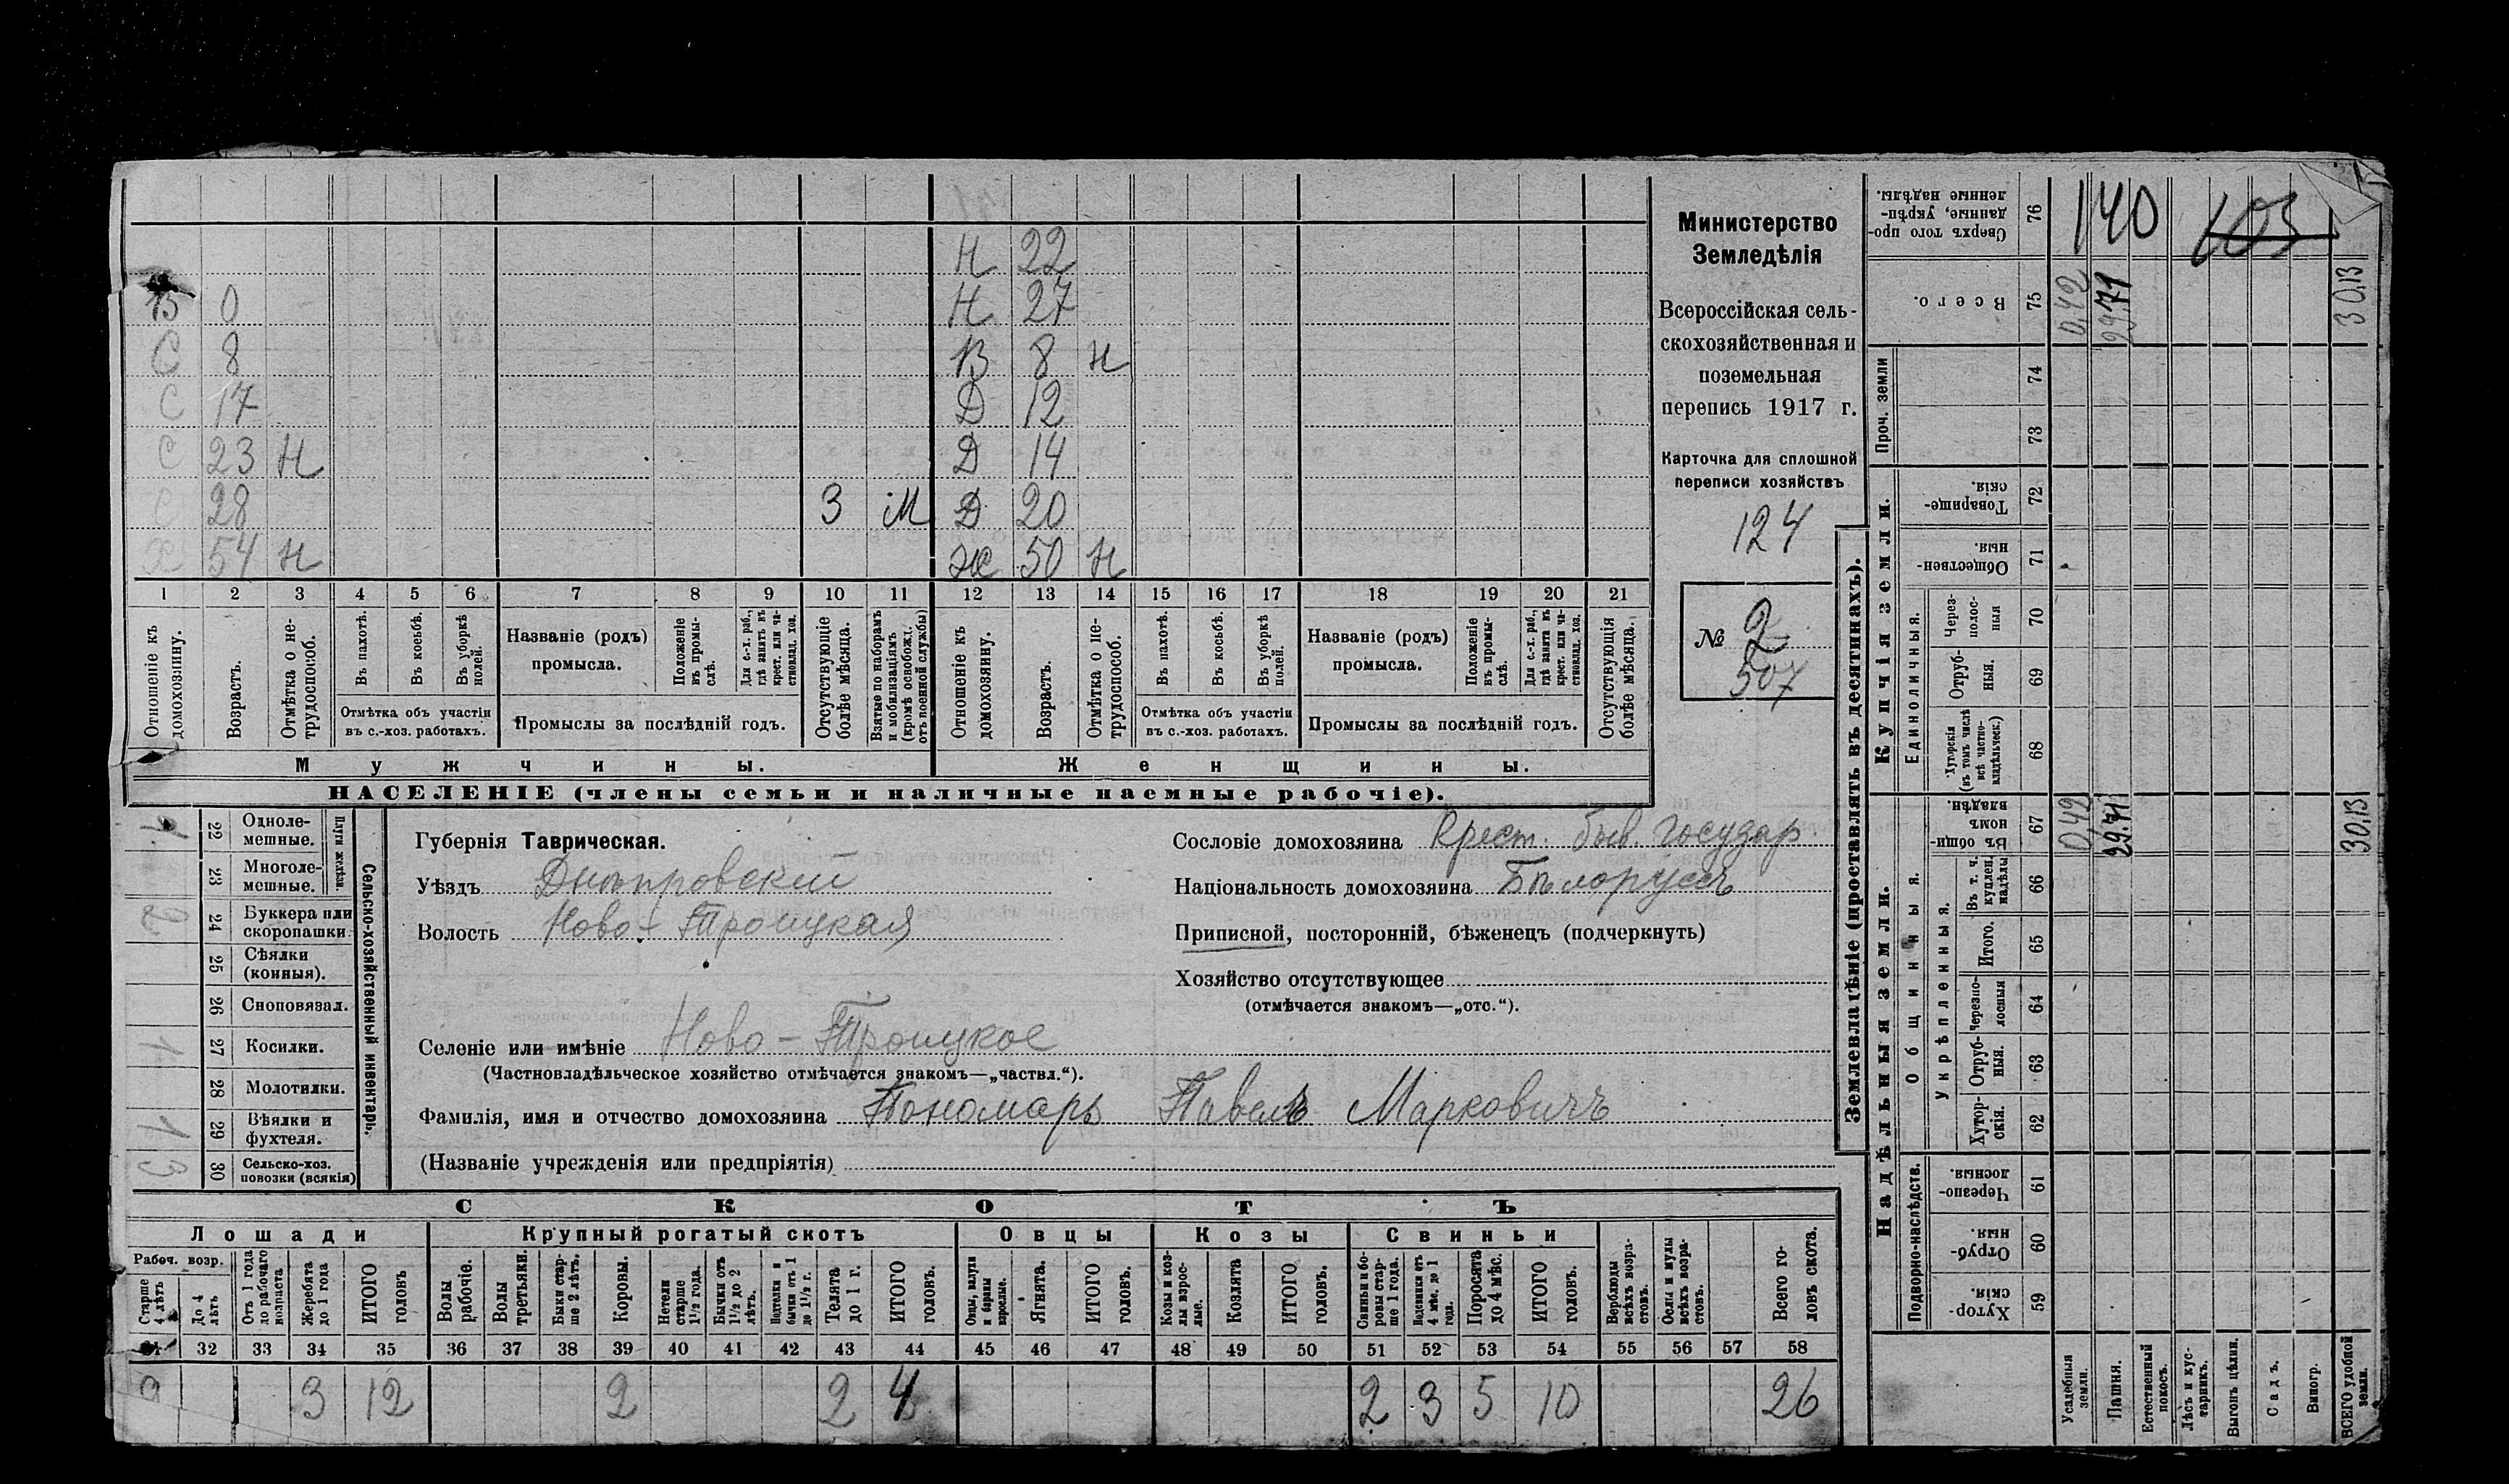 Н 22
В 0 Н 27
С 8 В 8 Н
С 17 Д 12
С 23 Н Д 14
С 28 З М Д 20
Х 54 Н Ж 50 Н
1 2 3 4 5 6 7 8 9 10 11 12 13 14 15 16 17 18 19 20 21
Отношеніе къ домохозяину.
Возрастъ.
Отмѣтка о не-
трудоспособ.
Въ пахотѣ.
Въ косьбѣ.
Въ уборкѣ полей.
Отмѣтка объ участіи
въ с.-хоз. работахъ.
Названіе (родъ)
промысла.
Положеніе въ промы-
слѣ.
Для с.-х. раб., гдѣ занятъ въ крест. или ча-
стновлад. хоз.
Промыслы за послѣдній годъ.
Отсутствующіе болѣе мѣсяца.
Взятые по наборамъ и мобилизаціямъ (кромѣ освобожд. отъ военной службы)
Отношеніе къ домохозяину.
Возрастъ.
Отмѣтка о не-
трудоспособ.
Въ пахотѣ.
Въ косьбѣ.
Въ уборкѣ полей.
Отмѣтка объ участіи
въ с.-хоз. работахъ.
Названіе (родъ)
промысла.
Положеніе въ промы-
слѣ.
Для с.-х. раб., гдѣ занята въ крест. или ча-
стновлад. хоз.
Промыслы за послѣдній годъ.
Отсутствующія болѣе мѣсяца.
Мужчины. Женщины.
НАСЕЛЕНІЕ (члены семьи и наличные наемные рабочіе).
Министерство
Земледѣлія
Всероссійская сель-
скохозяйственная и
поземельная
перепись 1917 г.
Карточка для сплошной
переписи хозяйствъ
124
№ 2
507
Сельско-хозяйственный инвентарь.
Плуги желѣзн.
22 Одноле-
мешные.
1
23 Многоле-
мешные.
24 Буккера или
скоропашки.
2
25 Сѣялки
(конныя).
26 Сноповязал.
27 Косилки.
1
28 Молотилки.
29 Вѣялки и
фухтеля.
1
30 Сельско-хоз.
повозки (всякія)
3
Губернія Таврическая.
Уѣздъ Днѣпровскій
Волость Ново-Троицкая
Селеніе или имѣніе Ново-Троицкое
(Частновладѣльческое хозяйство отмѣчается знакомъ—„частвл.“).
Фамилія, имя и отчество домохозяина Пономарь Павелъ Марковичъ
(Названіе учрежденія или предпріятія)
Сословіе домохозяина Крест. быв. государ.
Національность домохозяина Бѣлоруссъ
Приписной, посторонній, бѣженецъ (подчеркнуть)
Хозяйство отсутствующее
(отмѣчается знакомъ—„отс.“).
СКОТЪ
Лошади Крупный рогатый скотъ Овцы Козы Свиньи
Рабоч. возр.
Старше 4 лѣтъ
До 4 лѣтъ
Отъ 1 года до рабочаго возраста
Жеребята до 1 года
ИТОГО головъ
Волы рабочіе.
Волы третьяки.
Быки стар-
ше 2 лѣтъ.
Коровы.
Нетели старше 1½ года.
Бычки отъ 1½ до 2 лѣтъ.
Подтелки и бычки отъ 1 до 1½ г.
Телята до 1 г.
ИТОГО головъ.
Овцы, валухи и бараны взрослые.
Ягнята.
ИТОГО головъ.
Козы и коз-
лы взрос-
лые.
Козлята
ИТОГО головъ.
Свиньи и бо-
ровы стар-
ше 1 года.
Подсвинки отъ 4 мѣс. до 1 года.
Поросята до 4 мѣс.
ИТОГО головъ.
Верблюды всѣхъ возра-
стовъ.
Ослы и мулы всѣхъ возра-
стовъ.
Всего го-
ловъ скота.
31 32 33 34 35 36 37 38 39 40 41 42 43 44 45 46 47 48 49 50 51 52 53 54 55 56 57 58
9 3 12 2 2 4 2 3 5 10 26
Землевладѣніе (проставлять въ десятинахъ).
Надѣльныя земли. Купчія земли. Проч. земли
Подворно-наслѣдств.
Общинныя.
Укрѣпленныя.
Единоличныя.
59 Хутор-
скія.
60 Отруб-
ныя.
61 Черезпо-
лосныя.
62 Хутор-
скія.
63 Отруб-
ныя.
64 Черезпо-
лосныя
65 Итого.
66 Въ т. ч. куплен. надѣлы
67 Въ общин-
номъ владѣн.
68 Хуторскія (въ томъ числѣ всѣ частно-
владѣльческ.)
69 Отруб-
ныя.
70 Через-
полос-
ныя
71 Обществен-
ныя.
72 Товарище-
скія.
73
74
75 Всего.
76 Сверхъ того про-
данные, укрѣп-
ленные надѣлы.
140 103
0,42 29.71 30.13
0,42 29.71 30.13
Усадебныя земли.
Пашня.
Естественный покосъ.
Лѣсъ и кус-
тарникъ.
Выгонъ цѣлин.
Садъ.
Виногр.
ВСЕГО удобной земли.